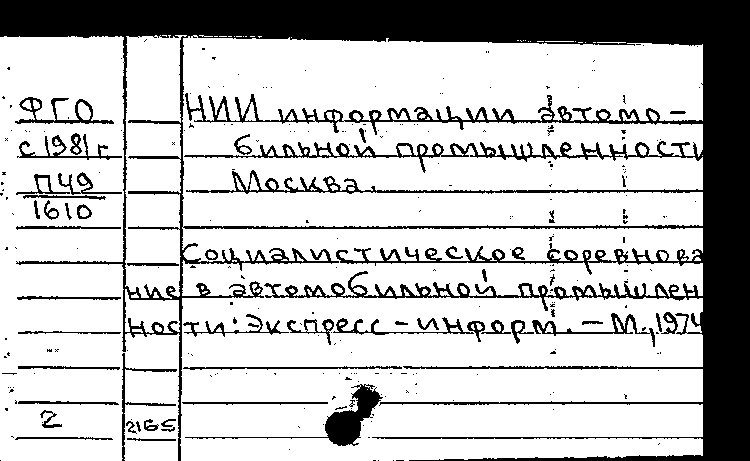 ФГО
с 1981 г.
П49
1610
НИИ информации автомо-
бильной промышленности
Москва.
Социалистическое соревнова
ние в автомобильной промышлен
ности: Экспресс-информ. – М., 1974
2
2165